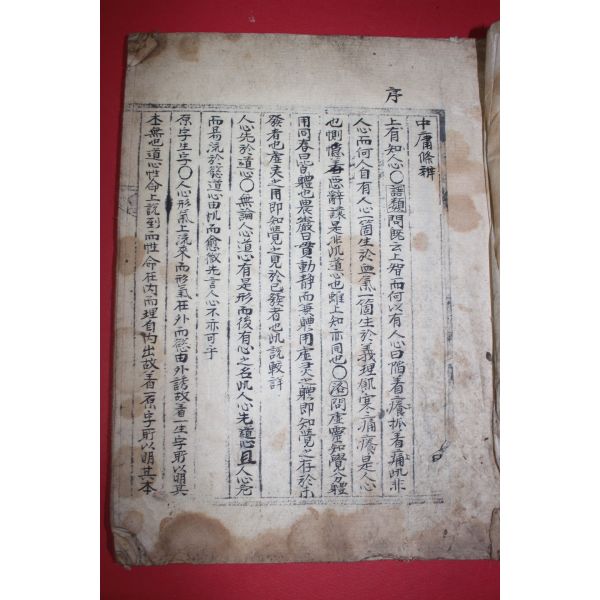 序
中庸條辨
上有知人心〇語類問旣云上智而何以有人心曰陷着癢抓着痛此非
人心而何人自有人心一箇生於血氣一箇生於義理飢寒痛癢是人心
也惻隱羞惡辭讓是非此道心也雖上知亦同也〇問虛靈知覺分體
用同春曰皆體也農巖曰貫動靜而兼體用虛灵之體即知覺之存於未
發者也虛灵之用即知覺之見於已發者也此說較詳
人心先於道心〇無論人心道心有是形而後有心之名此人心先道心且人心危
而易流於慾道心由此而愈微先言人心不亦可乎
原字生字〇人心形氣上流來而形氣在外而慾由外誘故着一生字所以明其
本無也道心性命上說到而性命在內而理自內出故着一原字所以明其本